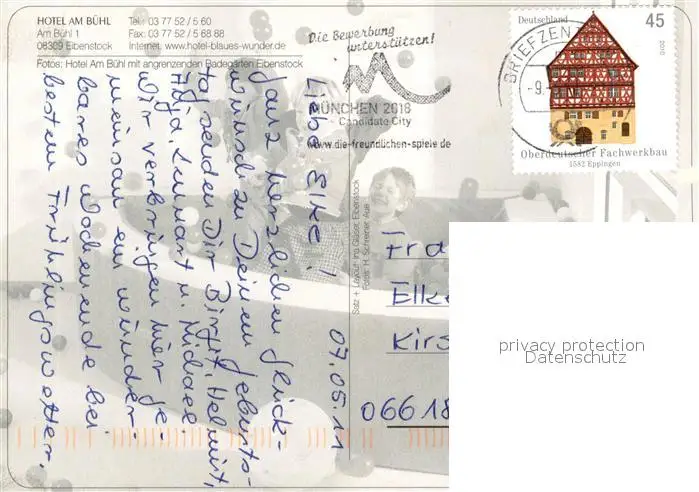 HOTEL AM BÜHL
Am Bühl 1
08309 Eibenstock
Tel.: 03 77 52 / 5 60
Fax: 03 77 52 / 5 68 88
Internet: www.hotel-blaues-wunder.de
Fotos: Hotel Am Bühl mit angrenzenden Badegärten Eibenstock
Die Bewerbung
unterstützen!
MÜNCHEN 2018
Candidate City
www.die-freundlichen-spiele.de
BRIEFZEN
-9.
Deutschland
45
2010
Oberdeutscher Fachwerkbau
1582 Eppingen
07.05.11
Liebe Elke!
Ganz herzlichen Glück-
wunsch zu Deinem Geburts-
tag senden Dir Birgit, Helmut,
Lennart u. Michael.
Wir verbringen hier ge-
meinsam ein wunder-
bares Wochenende bei
bestem Frühlingswetter.
Satz + Layout: Ina Gläser, Eibenstock
Fotos: H. Schreiner, Aue
Fra
Elke
Kirs
06618
privacy protection
Datenschutz